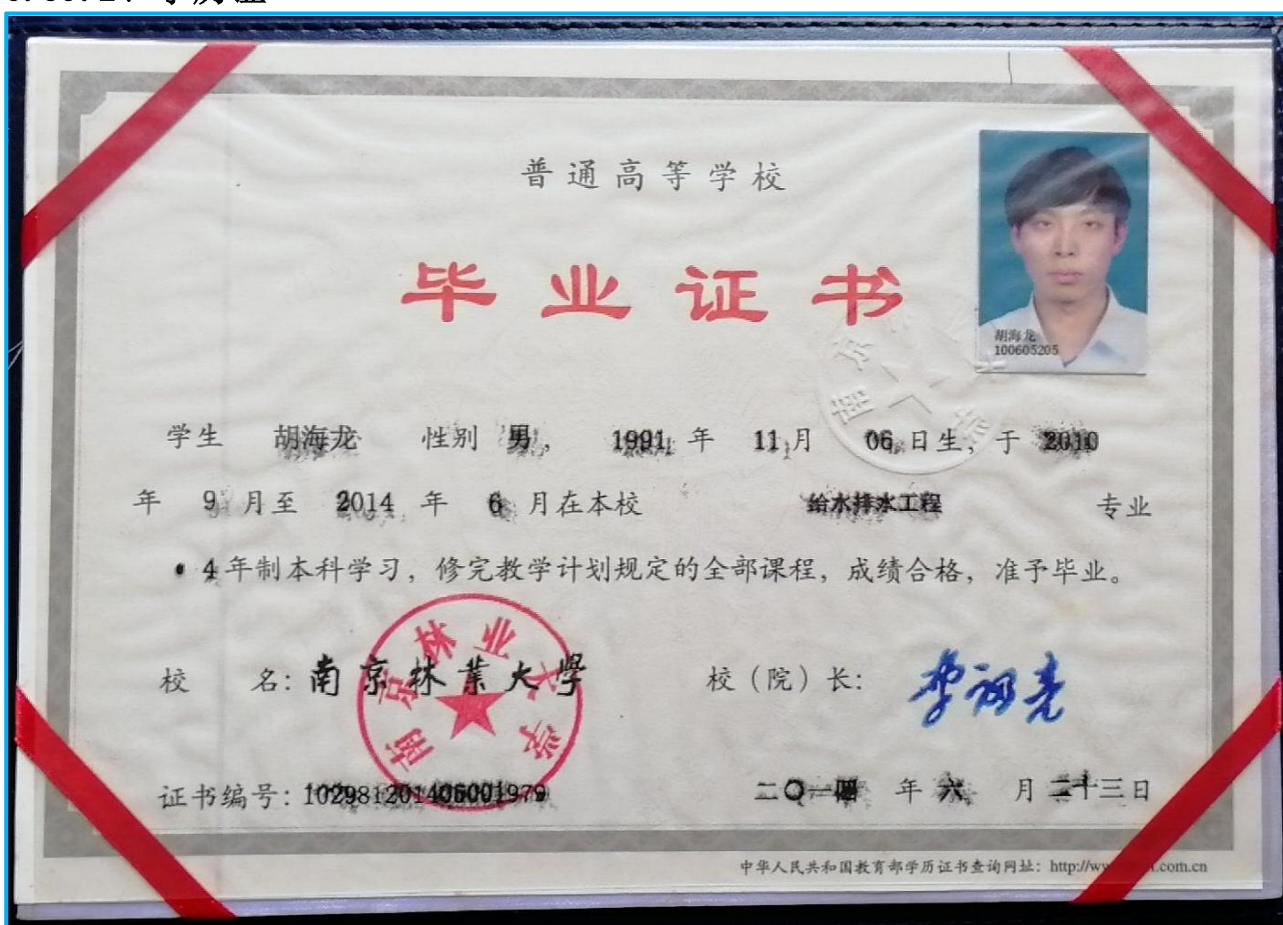 普通高等学校
毕业证书
胡海龙
100605205
学生 胡海龙 性别 男, 1991 年 11 月 06 日生, 于 2010
年 9 月至 2014 年 6 月在本校 给水排水工程 专业
4 年制本科学习, 修完教学计划规定的全部课程, 成绩合格, 准予毕业。
南京林业大学
校 名: 南京林業大學 校（院）长:
证书编号: 102981201405001979 二〇一四 年 六 月 二十三日
中华人民共和国教育部学历证书查询网址: http://
.com.cn